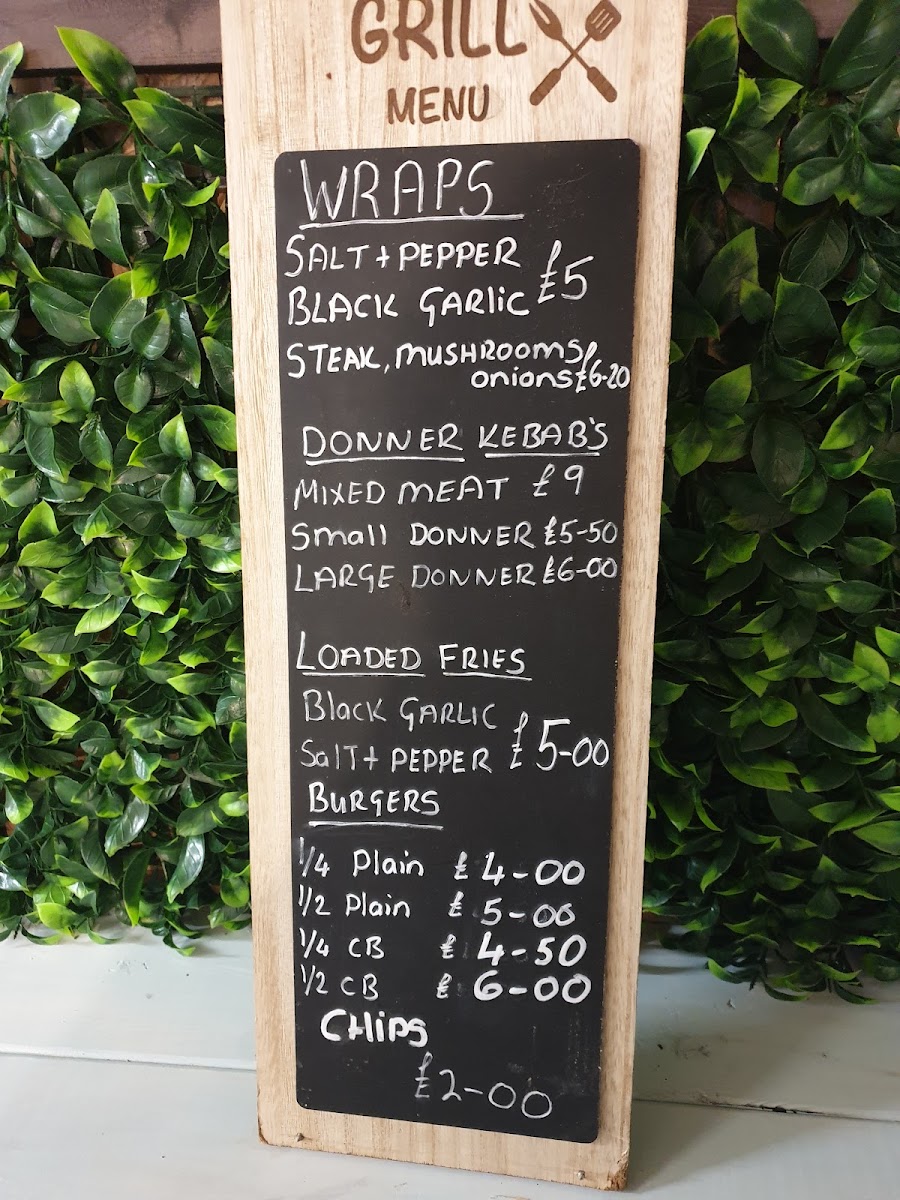 GRILL
MENU
WRAPS
SALT + PEPPER
BLACK GARlic £5
STEAK, MUSHROOMS,
onions £6-20
DONNER KEBAB'S
MIXED MEAT £9
Small DONNER £5-50
LARGE DONNER £6-00
LOADED FRIES
Black GARLIC
SalT + PEPPER £5-00
BURGERS
1/4 Plain £4-00
1/2 Plain £5-00
1/4 CB £4-50
1/2 CB £6-00
CHips
£2-00